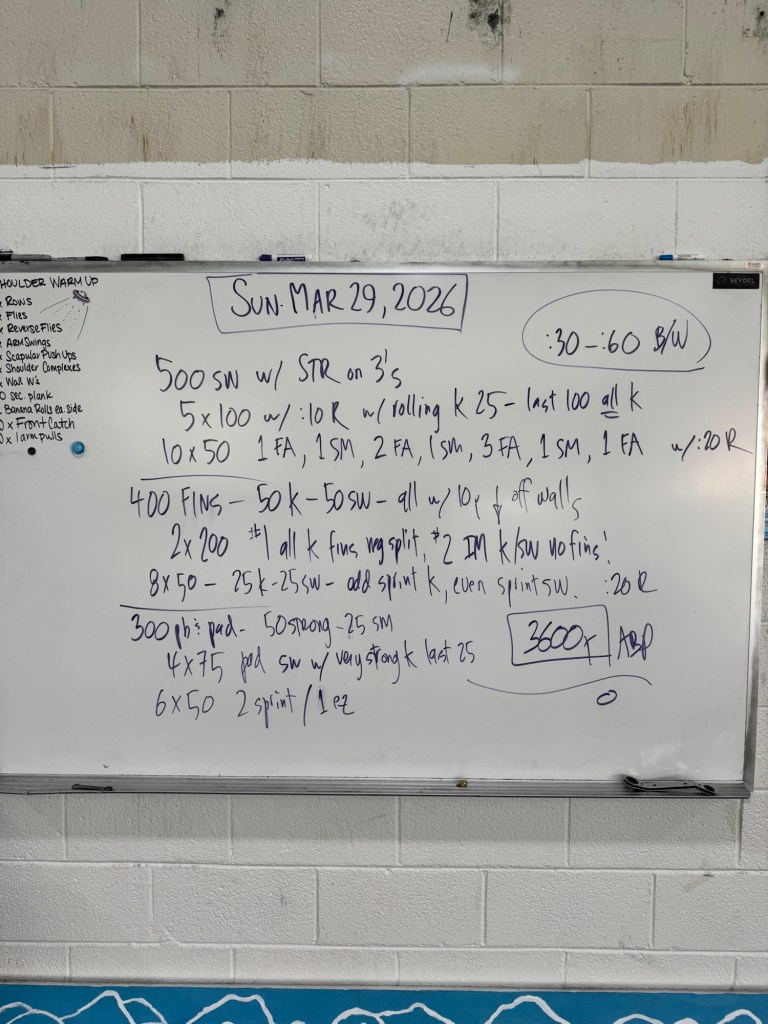 SHOULDER WARM UP
Rows
Flies
Reverse Flies
ARM Swings
Scapular Push Ups
Shoulder Complexes
Wall W's
sec. plank
Banana Rolls ea. side
x Front Catch
x 1 arm pulls
SUN. MAR 29, 2026
SEYDEL
:30 – :60 B/W
500 SW w/ STR on 3's
5 x 100 w/ :10 R w/ rolling K 25 – last 100 all K
10 x 50 1 FA, 1 SM, 2 FA, 1 SM, 3 FA, 1 SM, 1 FA w/ :20 R
400 FINS – 50 K – 50 SW – all w/ 10y ↓ off walls
2 x 200 #1 all K fins neg split, #2 IM K/SW no fins!
8 x 50 – 25 K – 25 SW – odd sprint K, even sprint SW. :20 R
300 pb & pad – 50 strong – 25 SM
3600y ABP
4 x 75 pad SW w/ very strong K last 25
6 x 50 2 sprint / 1 ez